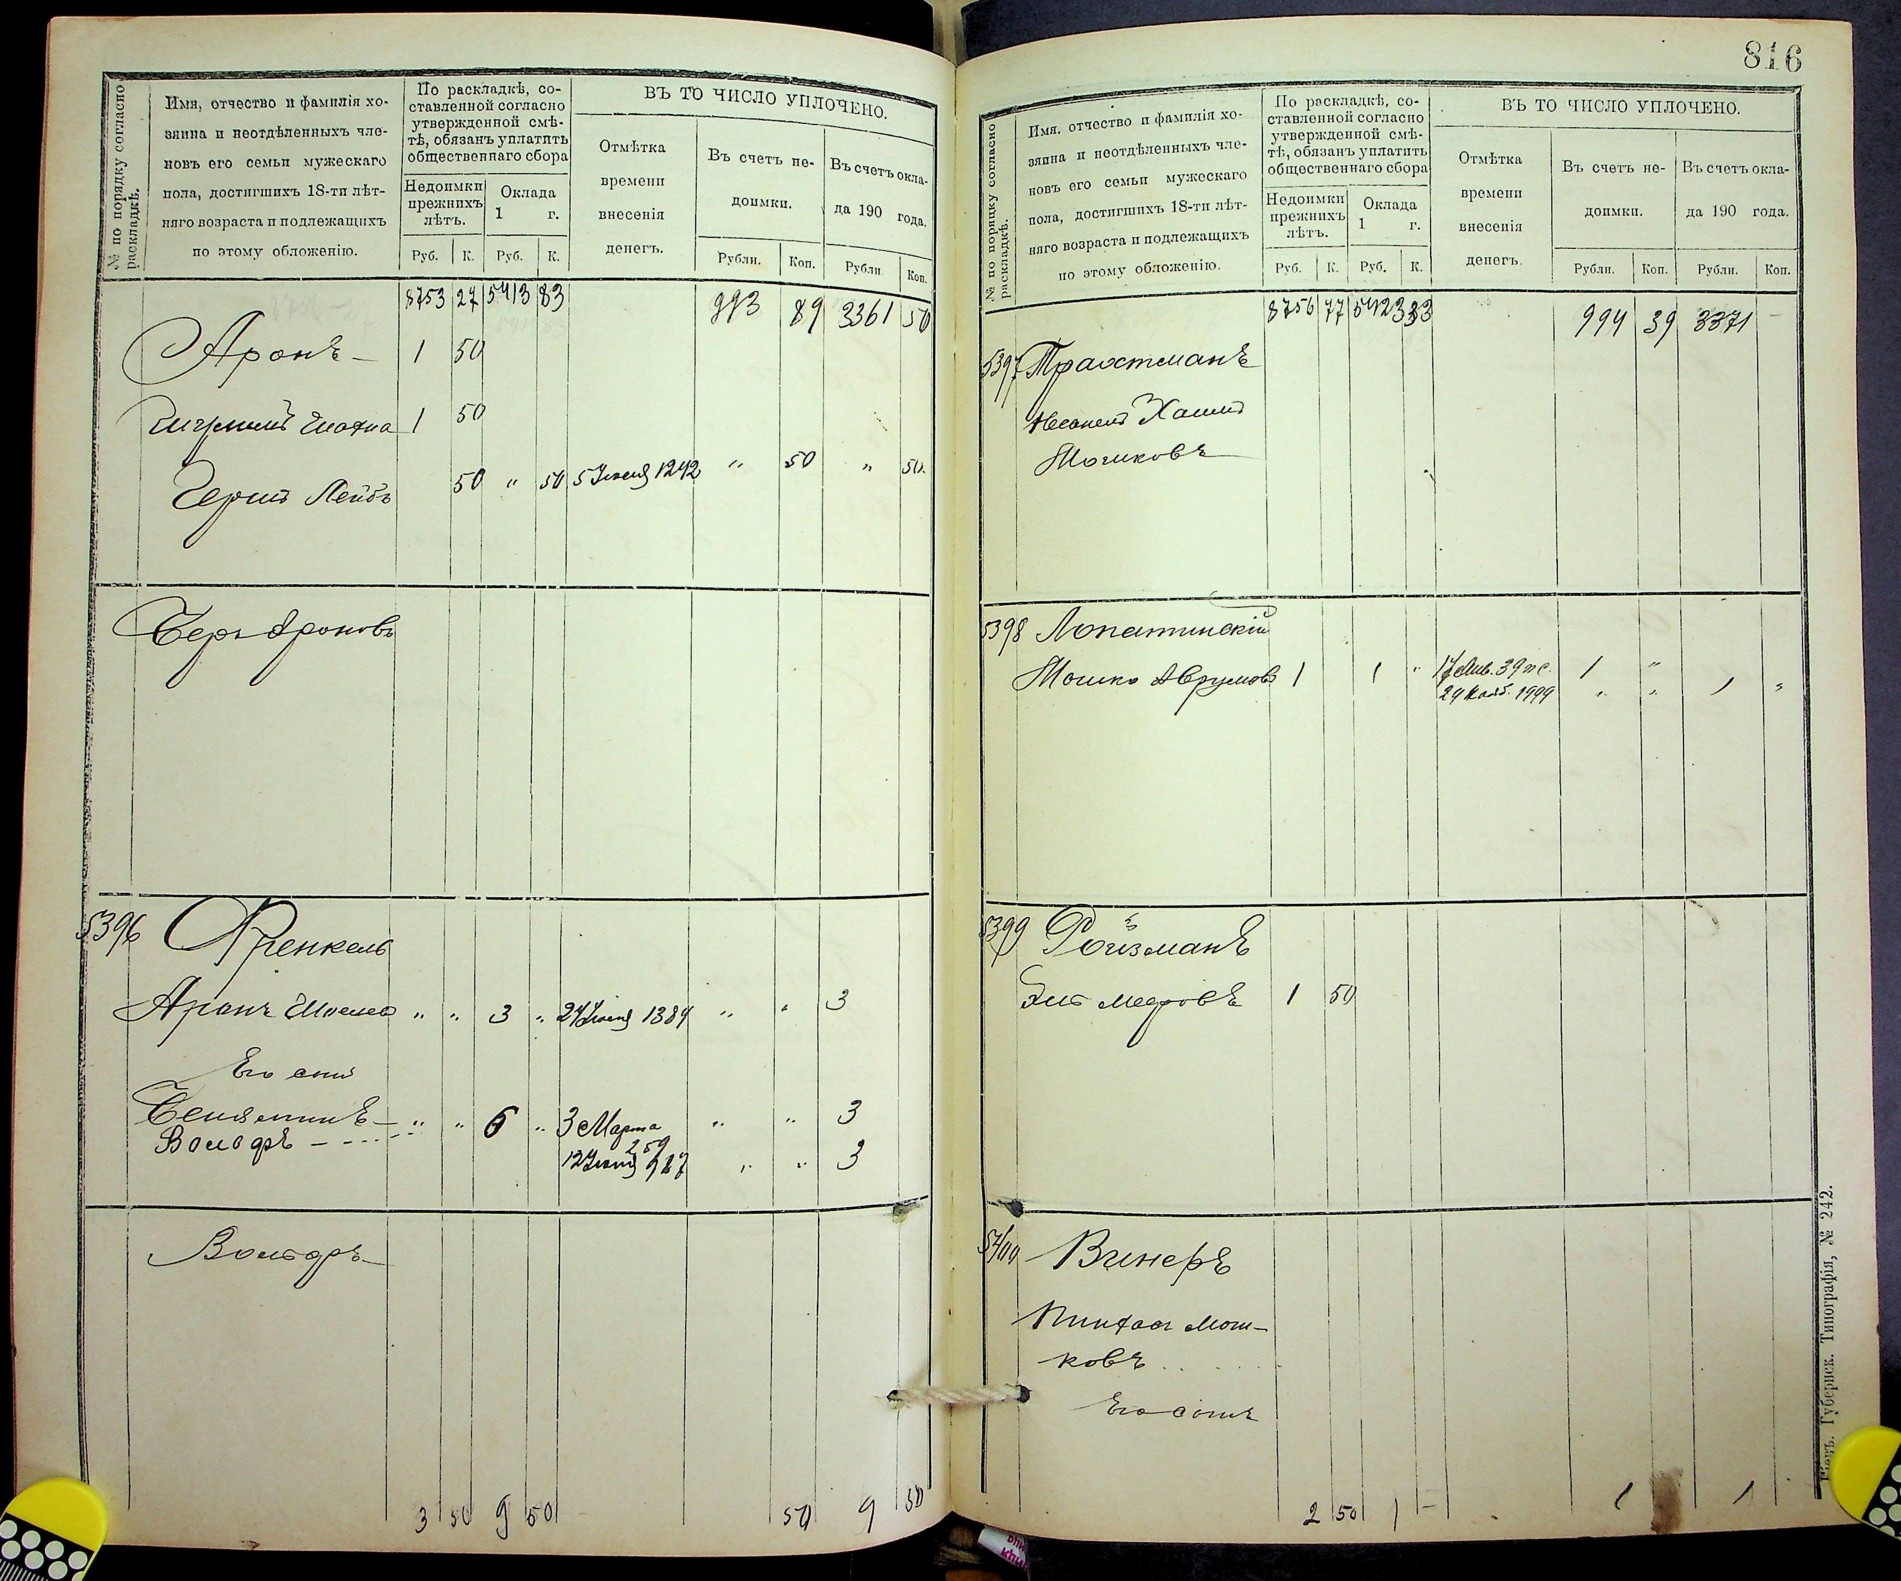 816
№ по порядку согласно
раскладкѣ.
Имя, отчество и фамилія хо-
зяина и неотдѣленныхъ чле-
новъ его семьи мужескаго
пола, достигшихъ 18-ти лѣт-
няго возраста и подлежащихъ
по этому обложенію.
По раскладкѣ, со-
ставленной согласно
утвержденной смѣ-
тѣ, обязанъ уплатить
общественнаго сбора
Недоимки
прежнихъ
лѣтъ.
Оклада
1 г.
Руб. К. Руб. К.
ВЪ ТО ЧИСЛО УПЛОЧЕНО.
Отмѣтка
времени
внесенія
денегъ.
Въ счетъ не-
доимки.
Въ счетъ окла-
да 190 года.
Рубли. Коп. Рубли. Коп.
8753 27 5413 83 993 89 3361 50
Аронъ 1 50
1 50
Герш Лейбъ 50 " 50 5 Іюня 1242 " 50 " 50
Беръ Ароновъ
5396 Френкель
Аронъ " " 3 " 24 Іюня 1384 " " 3
Его сын
Беніяминъ " " 6 " 3 Марта 259 " " 3
Вольфъ 12 Іюня 987 " " 3
Вольфъ
3 50 9 50 50 9 50
№ по порядку согласно
раскладкѣ.
Имя, отчество и фамилія хо-
зяина и неотдѣленныхъ чле-
новъ его семьи мужескаго
пола, достигшихъ 18-ти лѣт-
няго возраста и подлежащихъ
по этому обложенію.
По раскладкѣ, со-
ставленной согласно
утвержденной смѣ-
тѣ, обязанъ уплатить
общественнаго сбора
Недоимки
прежнихъ
лѣтъ.
Оклада
1 г.
Руб. К. Руб. К.
ВЪ ТО ЧИСЛО УПЛОЧЕНО.
Отмѣтка
времени
внесенія
денегъ.
Въ счетъ не-
доимки.
Въ счетъ окла-
да 190 года.
Рубли. Коп. Рубли. Коп.
8756 77 5423 33 994 39 3371 -
5397 Траостманъ
Хаим
Мошковъ
5398 Лопатинскій
Мошко Аврумовъ 1 1 " 17 Янв. 39 1 "
29 Нояб. 1999 " " 1 "
5399 Ройзманъ
Мееровъ 1 50
5400 Винеръ
Пинхас Мош-
ковъ
Его сынъ
2 50 1 - 1 1
Кіевъ. Губернск. Типографія, № 242.